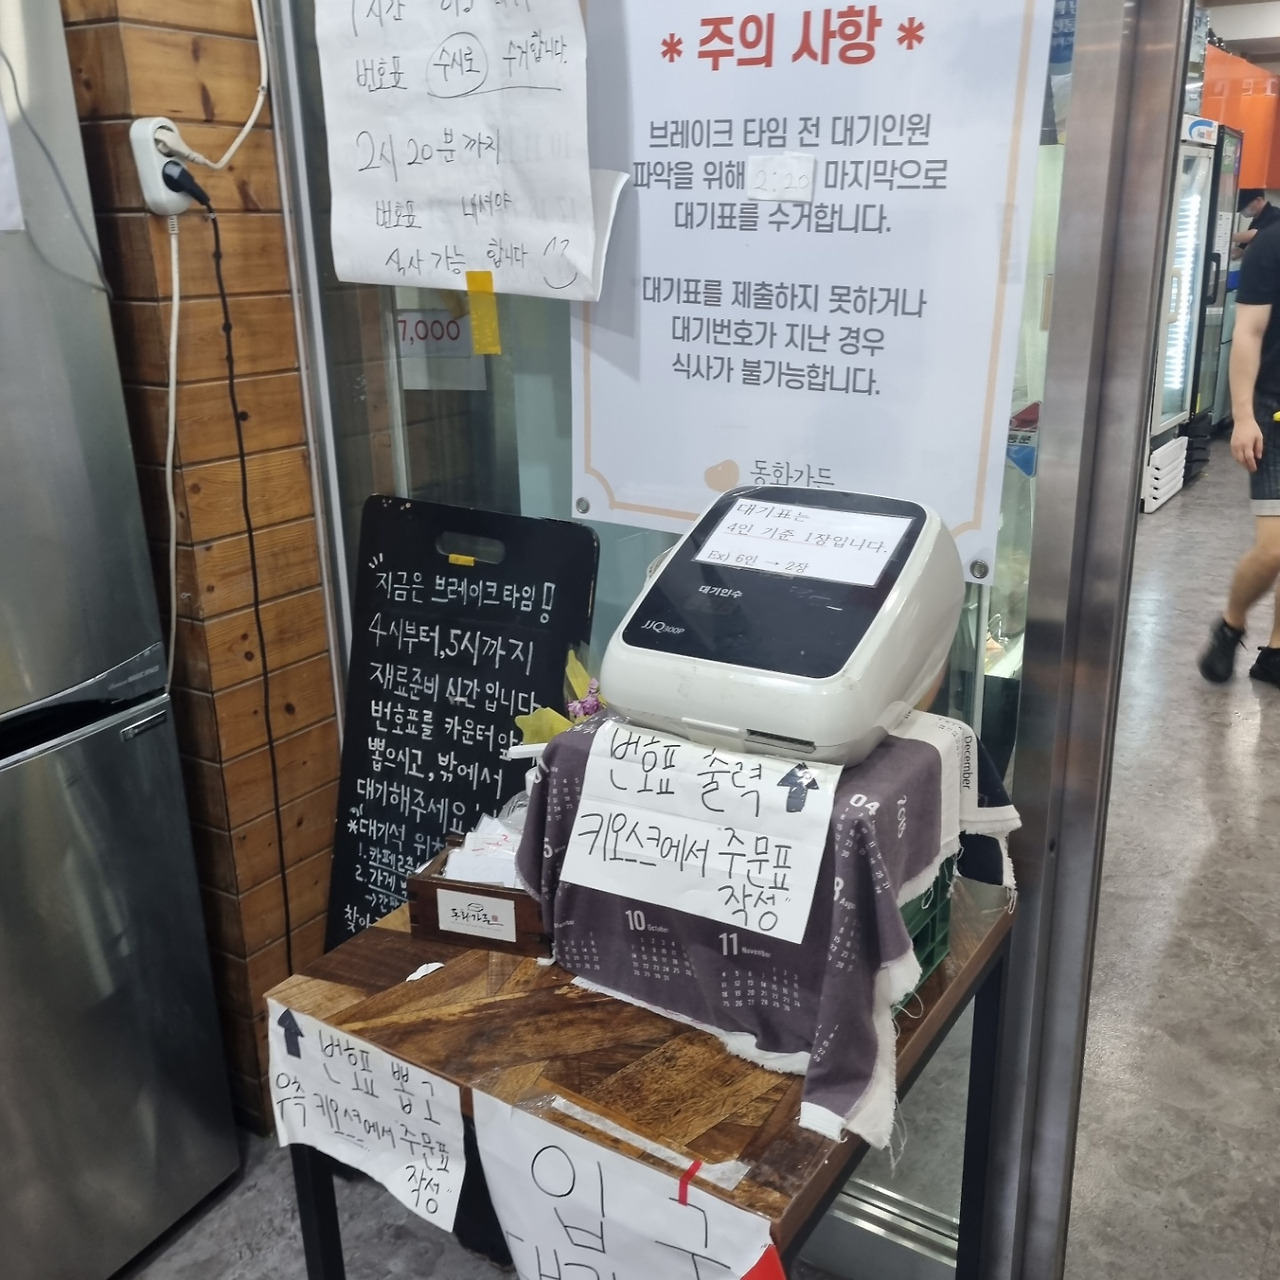 번호표 수시로 수거합니다.
2시 20분까지
번호표 내셔야
식사 가능 합니다
7,000
* 주의 사항 *
브레이크 타임 전 대기인원
파악을 위해 2:20 마지막으로
대기표를 수거합니다.
대기표를 제출하지 못하거나
대기번호가 지난 경우
식사가 불가능합니다.
동화가든
대기표는
4인 기준 1장입니다.
Ex) 6인 → 2장
대기인수
JJQ300P
지금은 브레이크타임!
4시부터, 5시까지
재료준비 시간입니다
번호표를 카운터 앞
뽑으시고, 밖에서
대기해주세요!
*대기석 위치
1. 카페2층
2. 가게
번호표 출력 ↑
키오스크에서 주문표
작성"
동화가든
December
04
10 October
11 November
↑ 번호표 뽑고
우측 키오스크에서 "주문표
작성"
입구